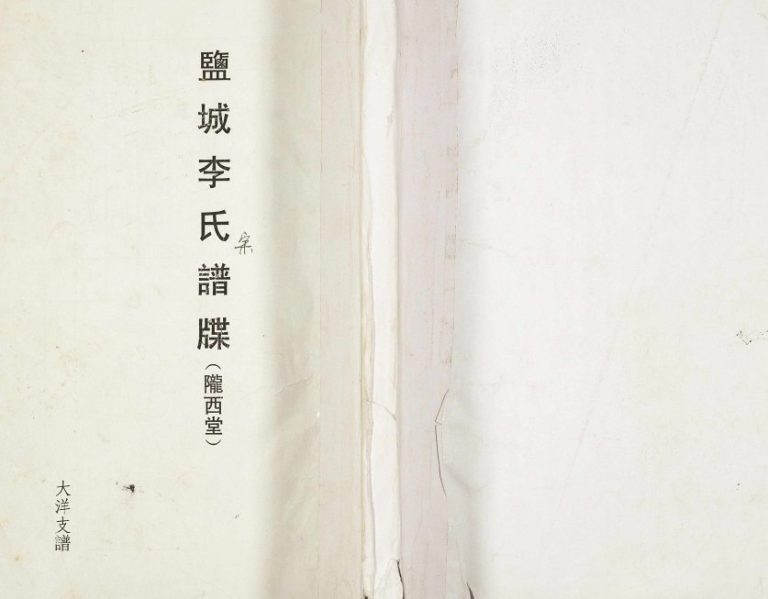 鹽城李氏譜牒(隴西堂)
宗
大洋支譜